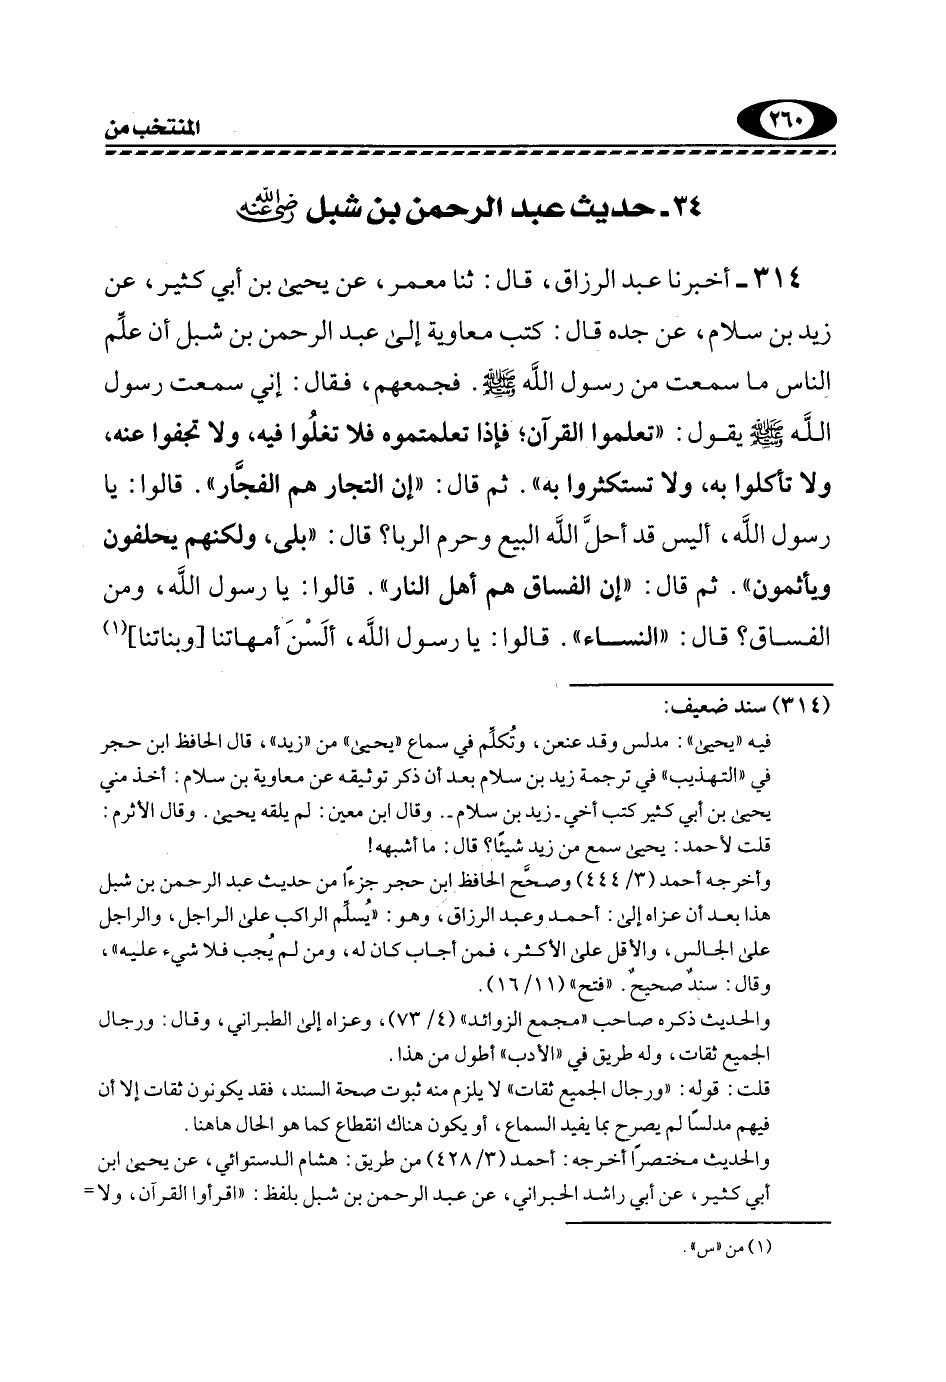 ٢٦٠
المنتخب من
٣٤ ـ حديث عبد الرحمن بن شبل رضي الله عنه
٣١٤ ـ أخبرنا عبد الرزاق، قال: ثنا معمر، عن يحيىٰ بن أبي كثير، عن
زيد بن سلام، عن جده قال: كتب معاوية إلىٰ عبد الرحمن بن شبل أن علِّم
الناس ما سمعت من رسول اللَّه ﷺ. فجمعهم، فقال: إني سمعت رسول
اللَّه ﷺ يقول: «تعلموا القرآن؛ فإذا تعلمتموه فلا تغلُوا فيه، ولا تجفوا عنه،
ولا تأكلوا به، ولا تستكثروا به». ثم قال: «إن التجار هم الفجَّار». قالوا: يا
رسول اللَّه، أليس قد أحلَّ اللَّه البيع وحرم الربا؟ قال: «بلى، ولكنهم يحلفون
ويأثمون». ثم قال: «إن الفساق هم أهل النار». قالوا: يا رسول اللَّه، ومن
الفساق؟ قال: «النساء». قالوا: يا رسول اللَّه، ألَسْنَ أمهاتنا [وبناتنا](١)
(٣١٤) سند ضعيف:
فيه «يحيىٰ»: مدلس وقد عنعن، وتُكلِّم في سماع «يحيىٰ» من «زيد»، قال الحافظ ابن حجر
في «التهذيب» في ترجمة زيد بن سلام بعد أن ذكر توثيقه عن معاوية بن سلام: أخذ مني
يحيىٰ بن أبي كثير كتب أخي ـ زيد بن سلام ـ. وقال ابن معين: لم يلقه يحيىٰ. وقال الأثرم:
قلت لأحمد: يحيىٰ سمع من زيد شيئًا؟ قال: ما أشبهه!
وأخرجه أحمد (٣/ ٤٤٤) وصحَّح الحافظ ابن حجر جزءاً من حديث عبد الرحمن بن شبل
هذا بعد أن عزاه إلىٰ: أحمد وعبد الرزاق، وهو: «يُسلِّم الراكب علىٰ الراجل، والراجل
علىٰ الجالس، والأقل علىٰ الأكثر، فمن أجاب كان له، ومن لم يُجب فلا شيء عليه»،
وقال: سندٌ صحيحٌ. «فتح» (١١/ ١٦).
والحديث ذكره صاحب «مجمع الزوائد» (٤/ ٧٣)، وعزاه إلىٰ الطبراني، وقال: ورجال
الجميع ثقات، وله طريق في «الأدب» أطول من هذا.
قلت: قوله: «ورجال الجميع ثقات» لا يلزم منه ثبوت صحة السند، فقد يكونون ثقات إلا أن
فيهم مدلسًا لم يصرح بما يفيد السماع، أو يكون هناك انقطاع كما هو الحال هاهنا.
والحديث مختصراً أخرجه: أحمد (٣/ ٤٢٨) من طريق: هشام الدستوائي، عن يحيىٰ ابن
أبي كثير، عن أبي راشد الحبراني، عن عبد الرحمن بن شبل بلفظ: «اقرأوا القرآن، ولا =
(١) من «س».